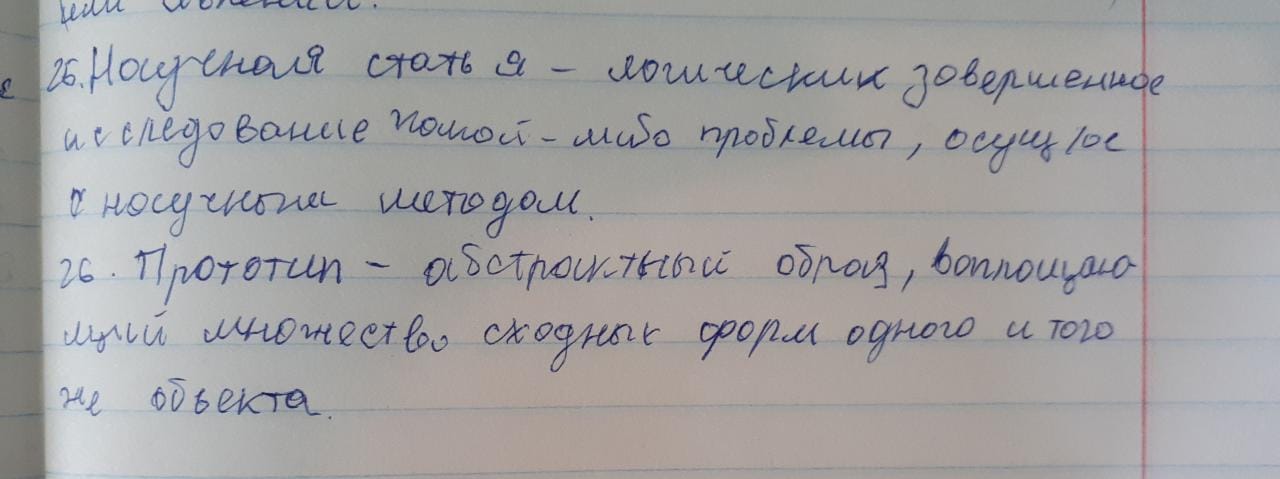 25. Научная статья – логически завершенное
исследование какой-либо проблемы, осущ
с научным методом.
26. Прототип – абстрактный образ, воплощаю-
щий множество сходных форм одного и того
же объекта.